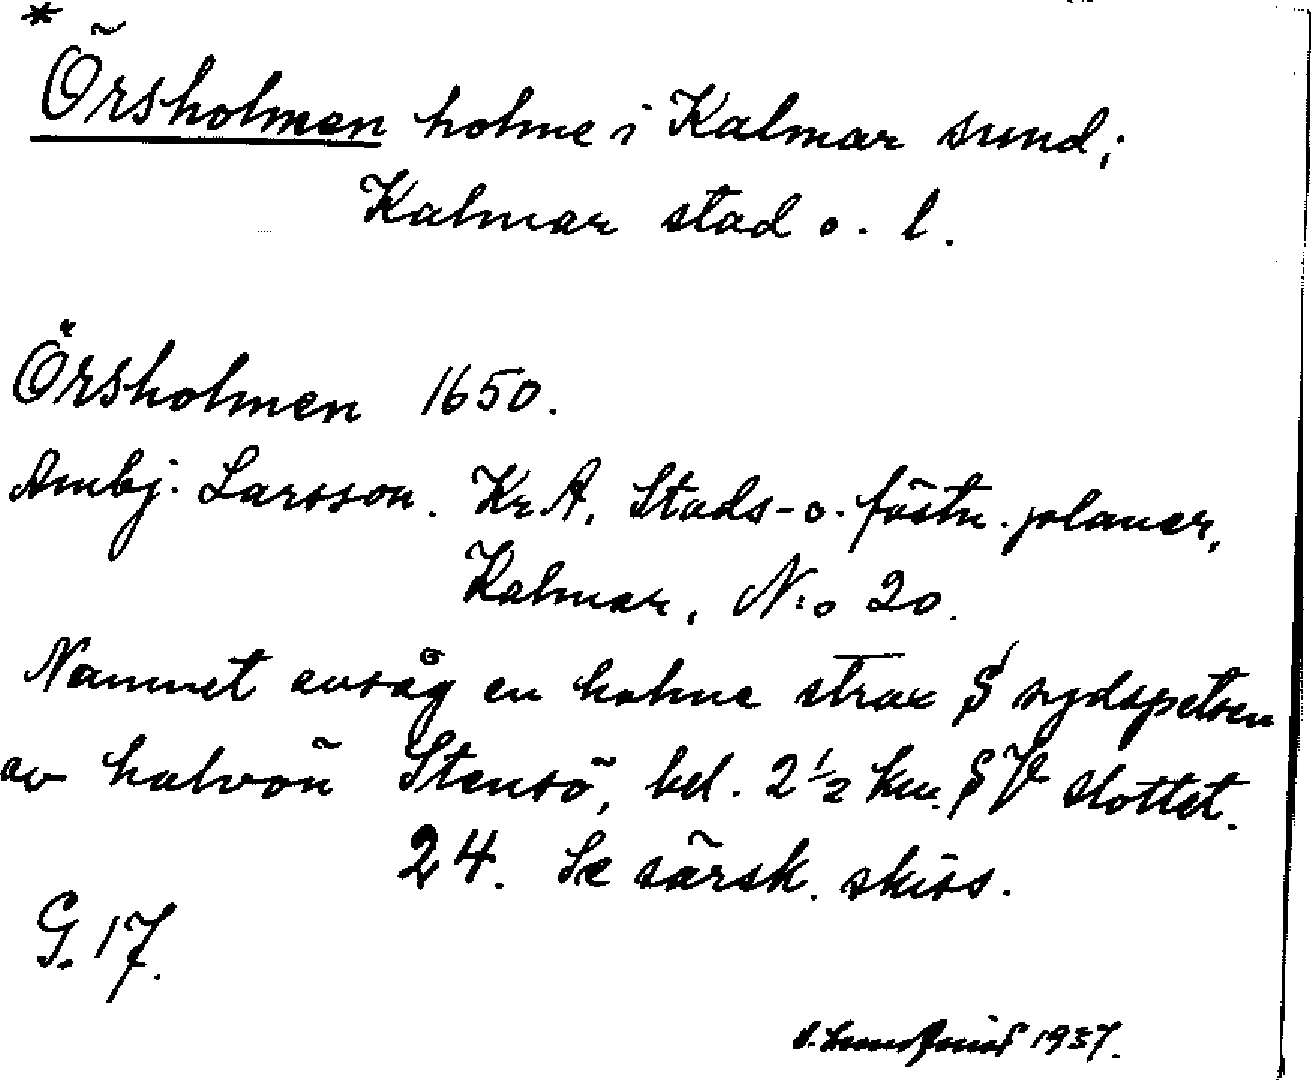 *
Örsholmen holme i Kalmar sund;
Kalmar stad o. l.
Örsholmen 1650.
Ambj. Larsson. KrA, Stads- o. fästn. planer,
Kalmar, N:o 20.
Namnet avsåg en holme strax S sydspetsen
av halvön Stensö, bel. 2½ km. SV slottet.
24. Se särsk. skiss.
G. 17.
1937.